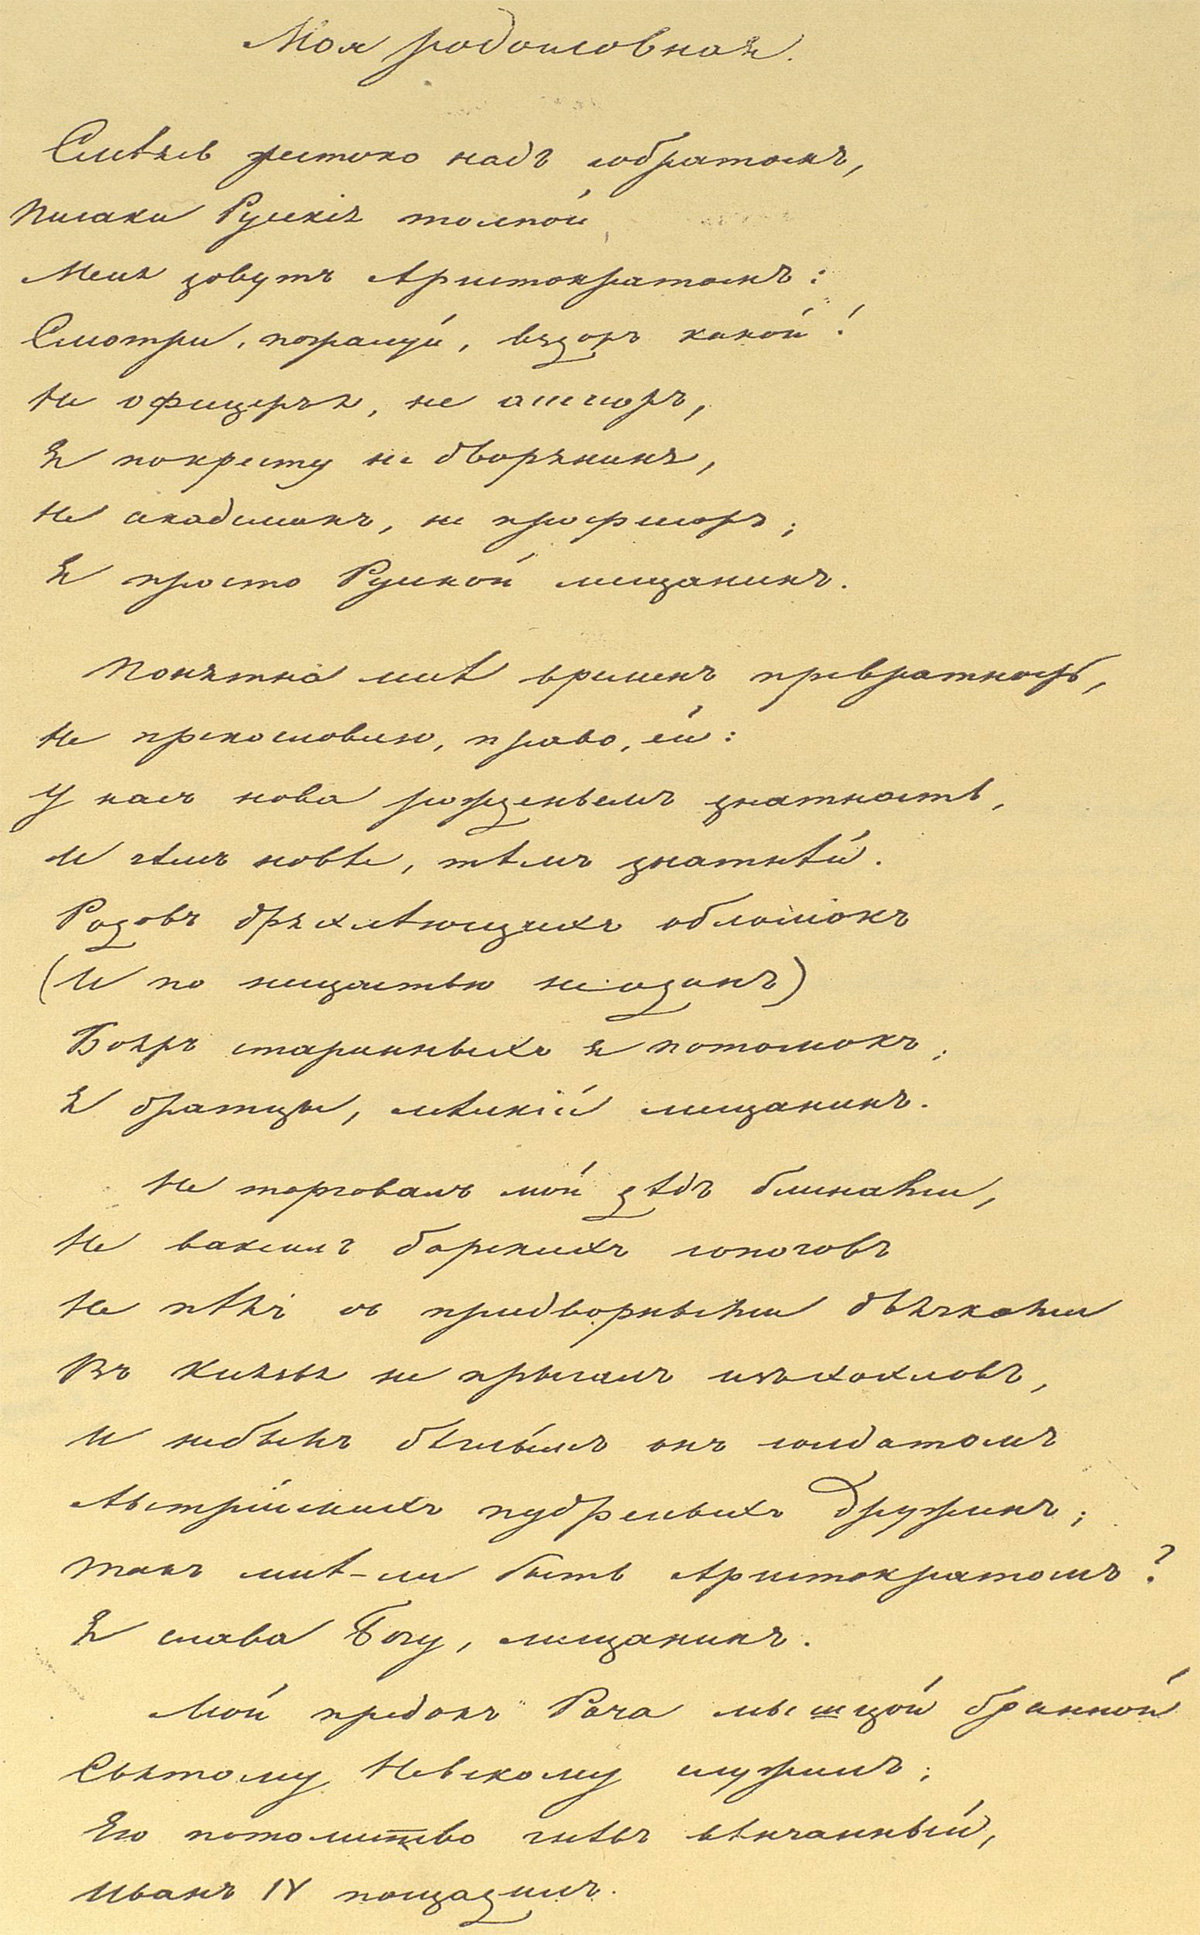 Моя родословная.
Смѣясь жестоко надъ собратомъ,
Писаки Рускіе толпой
Меня зовутъ Аристократомъ:
Смотри, пожалуй, вздоръ какой!
Не офицеръ я, не ассесоръ,
Я покресту не дворянинъ,
Не академикъ, не профессоръ;
Я просто Руской мещанинъ.
Понятна мнѣ временъ превратность,
Не прекословлю, право, ей:
У насъ нова рожденьемъ знатность,
И чѣмъ новѣе, тѣмъ знатнѣй.
Родовъ дряхлѣющихъ обломокъ
(И по нещастью не одинъ)
Бояръ старинныхъ я потомокъ;
Я братцы, мѣлкій мещанинъ.
Не торговалъ мой дѣдъ блинами,
Не ваксилъ барскихъ сапоговъ
Не пѣлъ съ придворными дьячками
Въ князья не прыгалъ изъ хохловъ,
И небылъ бѣглымъ онъ солдатомъ
Австрійскихъ пудреныхъ дружинъ;
Такъ мнѣ-ли быть Аристократомъ?
Я слава Богу, мещанинъ.
Мой предокъ Рача мышцой бранной
Святому Невскому служилъ;
Его потомство гнѣвъ вѣнчанный,
Иванъ IV пощадилъ.